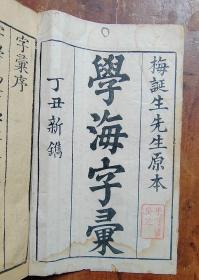 梅誕生先生原本
學海字彙
丁丑新鐫
字彙序